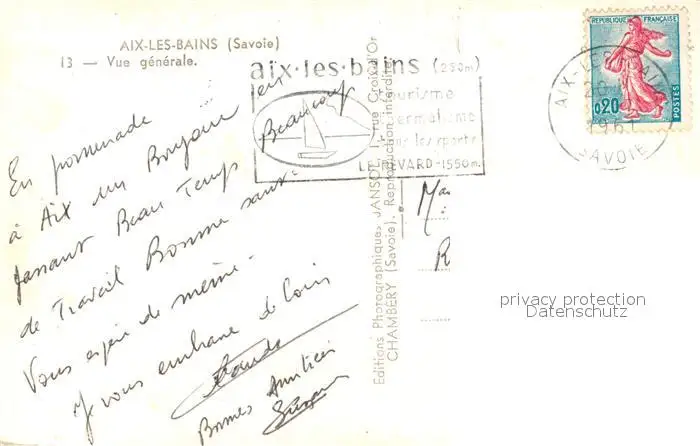 AIX-LES-BAINS (Savoie)
13 — Vue générale.
aix·les·bains (250m)
tourisme
thermalisme
tous les sports
LE REVARD-1550m.
REPUBLIQUE FRANÇAISE
0,20
POSTES
AIX-LES-BAINS
SAVOIE
En promenade
à Aix un Bonjour en
passant Beau Temps Beaucoup
de Travail Bonne santé
Vous espère de même.
Je vous embrasse de loin
Bonnes Amitiés
Editions Photographiques JANSOL, rue Croix d'Or
CHAMBÉRY (Savoie). Reproduction interdite.
privacy protection
Datenschutz